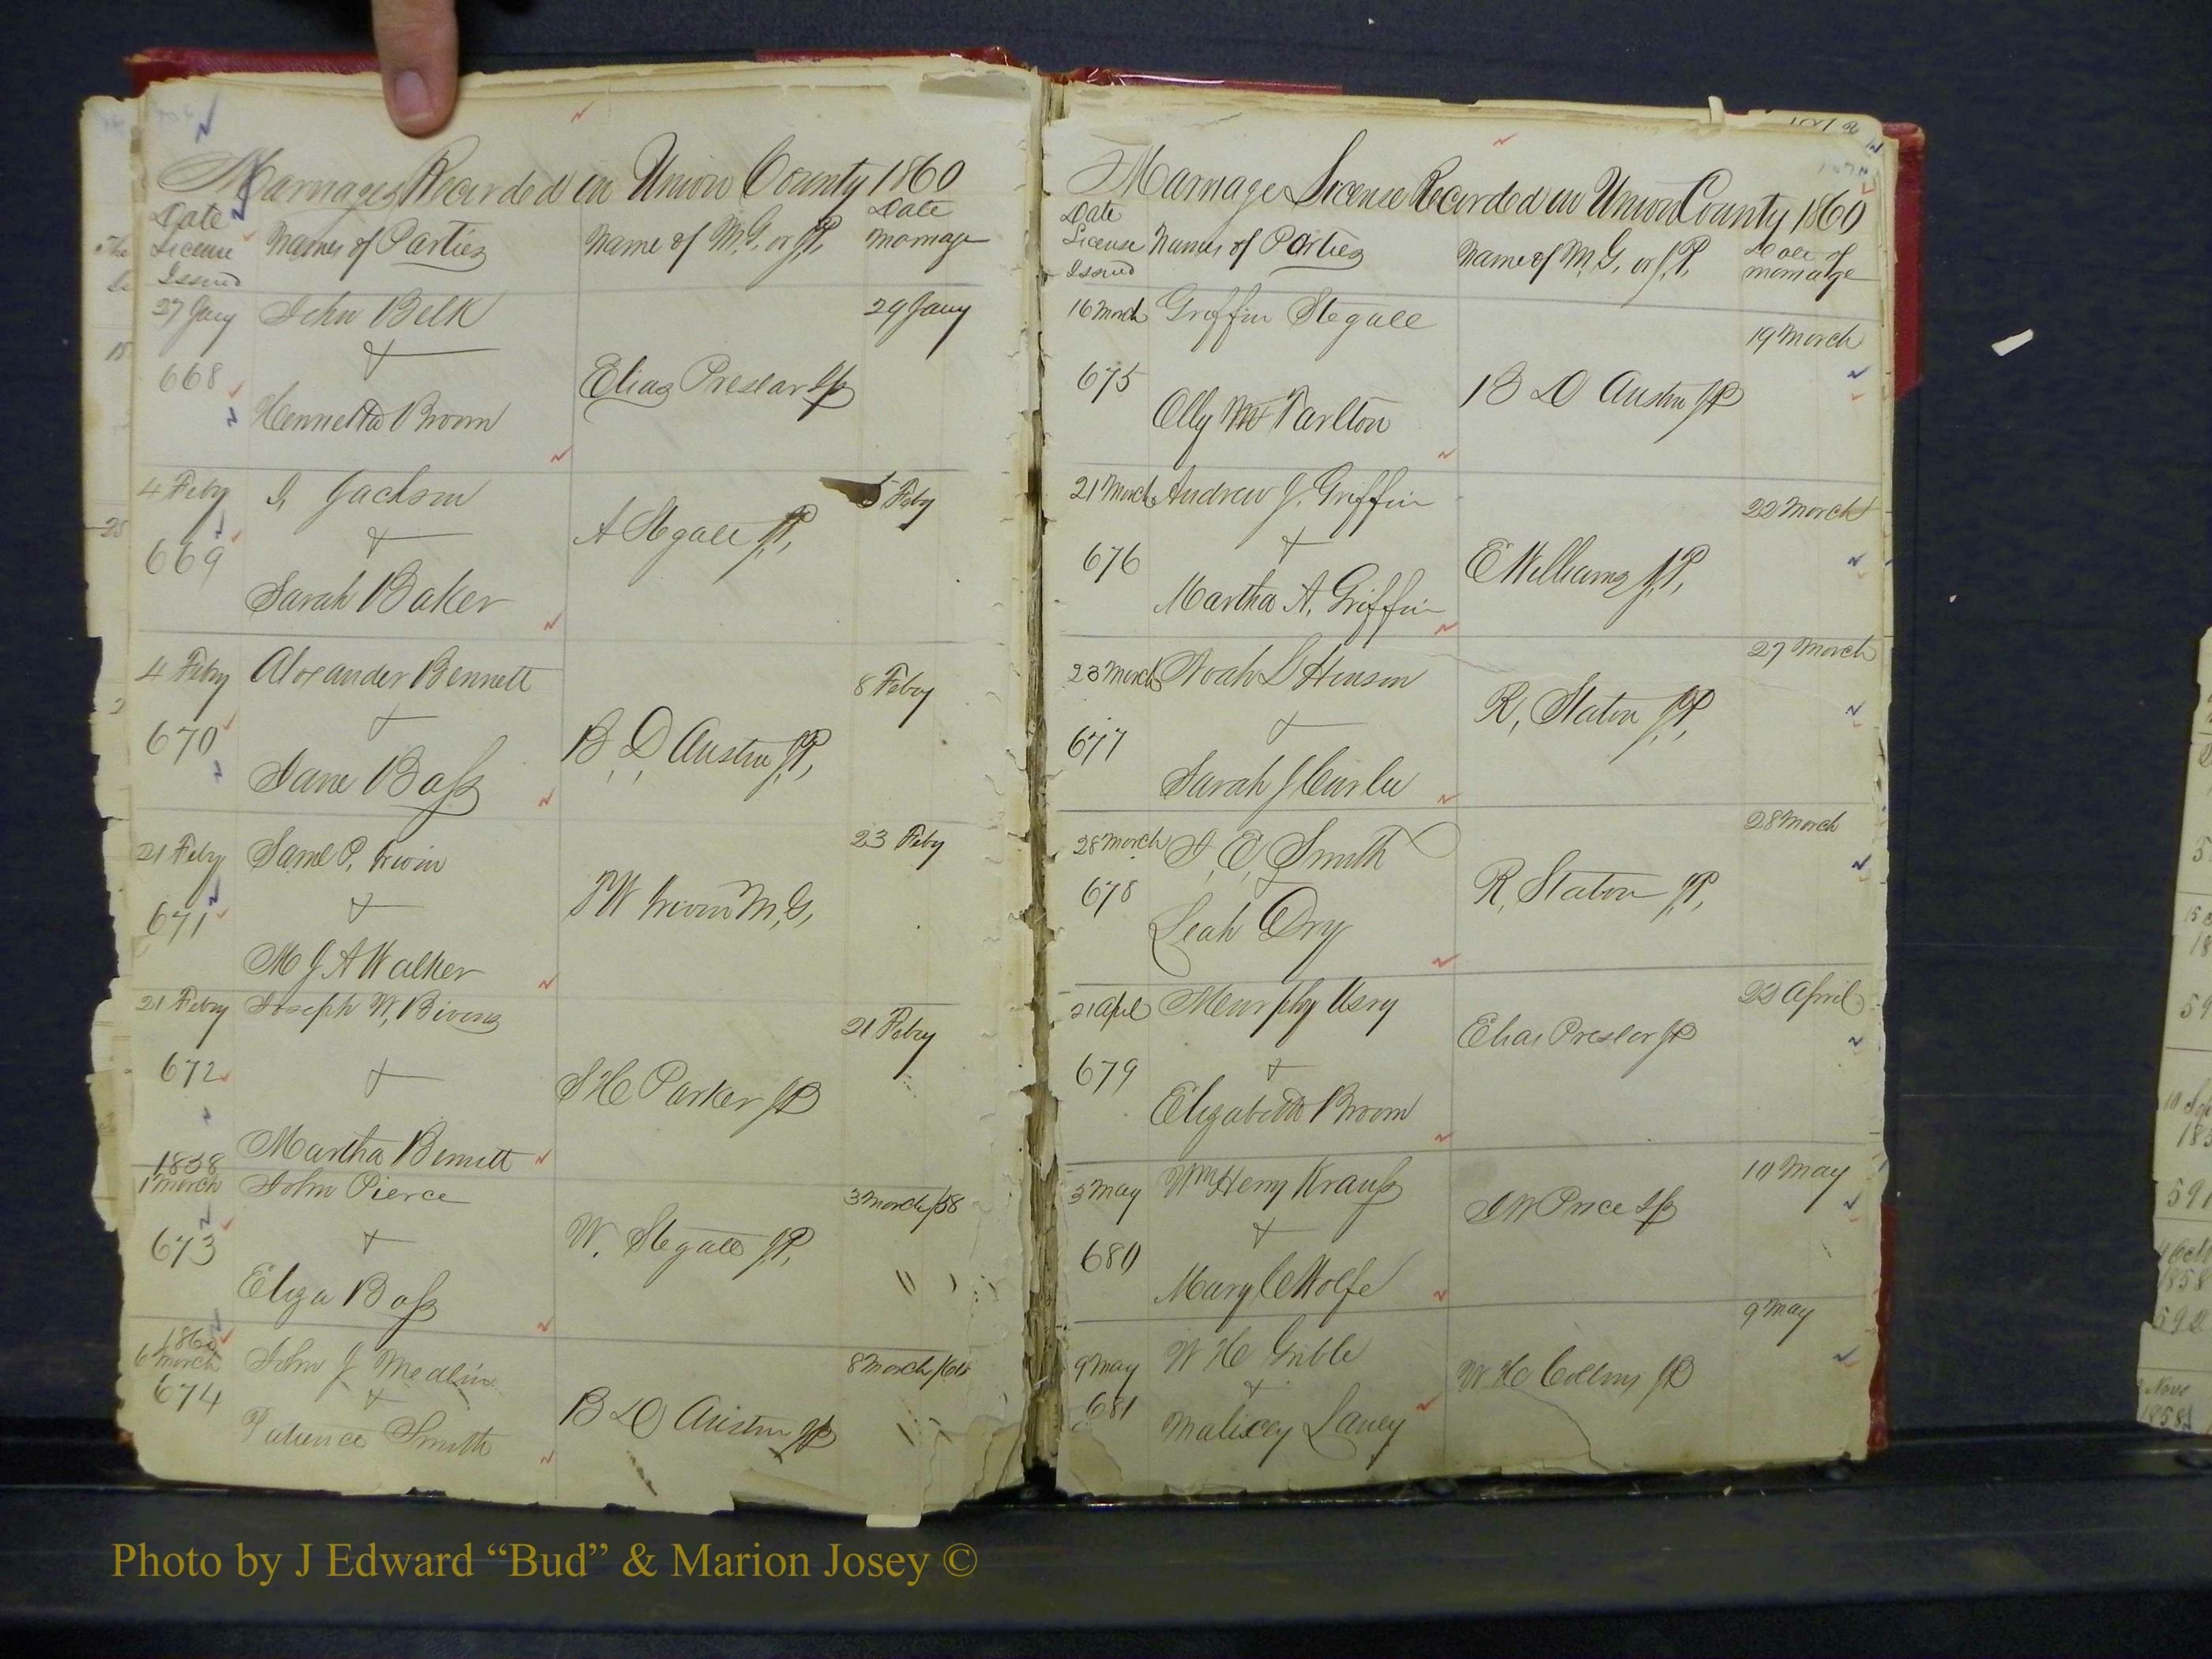 Marriages Recorded in Union County 1860
Date License Issued Names of Parties Name of M.G. or J.P. Date Marriage
27 Jany John Belk 29 Jany
+
668 Elias Preslar JP
Henretta Broom
4 Feby Jackson 5 Feby
+ A Stegall J.P.
669
Sarah Baker
4 Feby Alexander Bennett 8 Febry
+
670 B. D. Austin J.P.
Jane Bass
21 Feby Saml P. Irwin 23 Feby
+ Irwin M.G.
671
M J A Walker
21 Febry Joseph W. Bivens 21 Febry
672 +
S H Parker JP
Martha Bennett
1858
1 March John Pierce 3 March/58
+ W. Stegall J.P.
673
Eliza Bass
1860
6 March John J Medlin 8 March/60
674 +
B D Austin JP
Patience Smith
Marriage License Recorded in Union County 1860
Date License Issued Names of Parties Name of M.G. or J.P. Date of marriage
16 March Griffin Stegall
19 March
675 B D Austin JP
Olly M Tarlton
21 March Andrew J. Griffin 22 March
+
676 E Williams J.P.
Martha A. Griffin
23 March Noah S Hinson 27 March
+ R. Staton J.P.
677
Sarah J Curlee
28 March J. E. Smith 28 March
678 + R. Staton J.P.
Leah Dry
21 Apl Murphy Usry 22 April
Elias Preslar JP
679 +
Elizabeth Broom
5 May Wm Henry Krauss 10 May
+ J W Price JP
680
Mary C Wolfe
9 May
9 May W H Gribble
+ W H Collins JP
681
Malissy Laney
Photo by J Edward “Bud” & Marion Josey ©